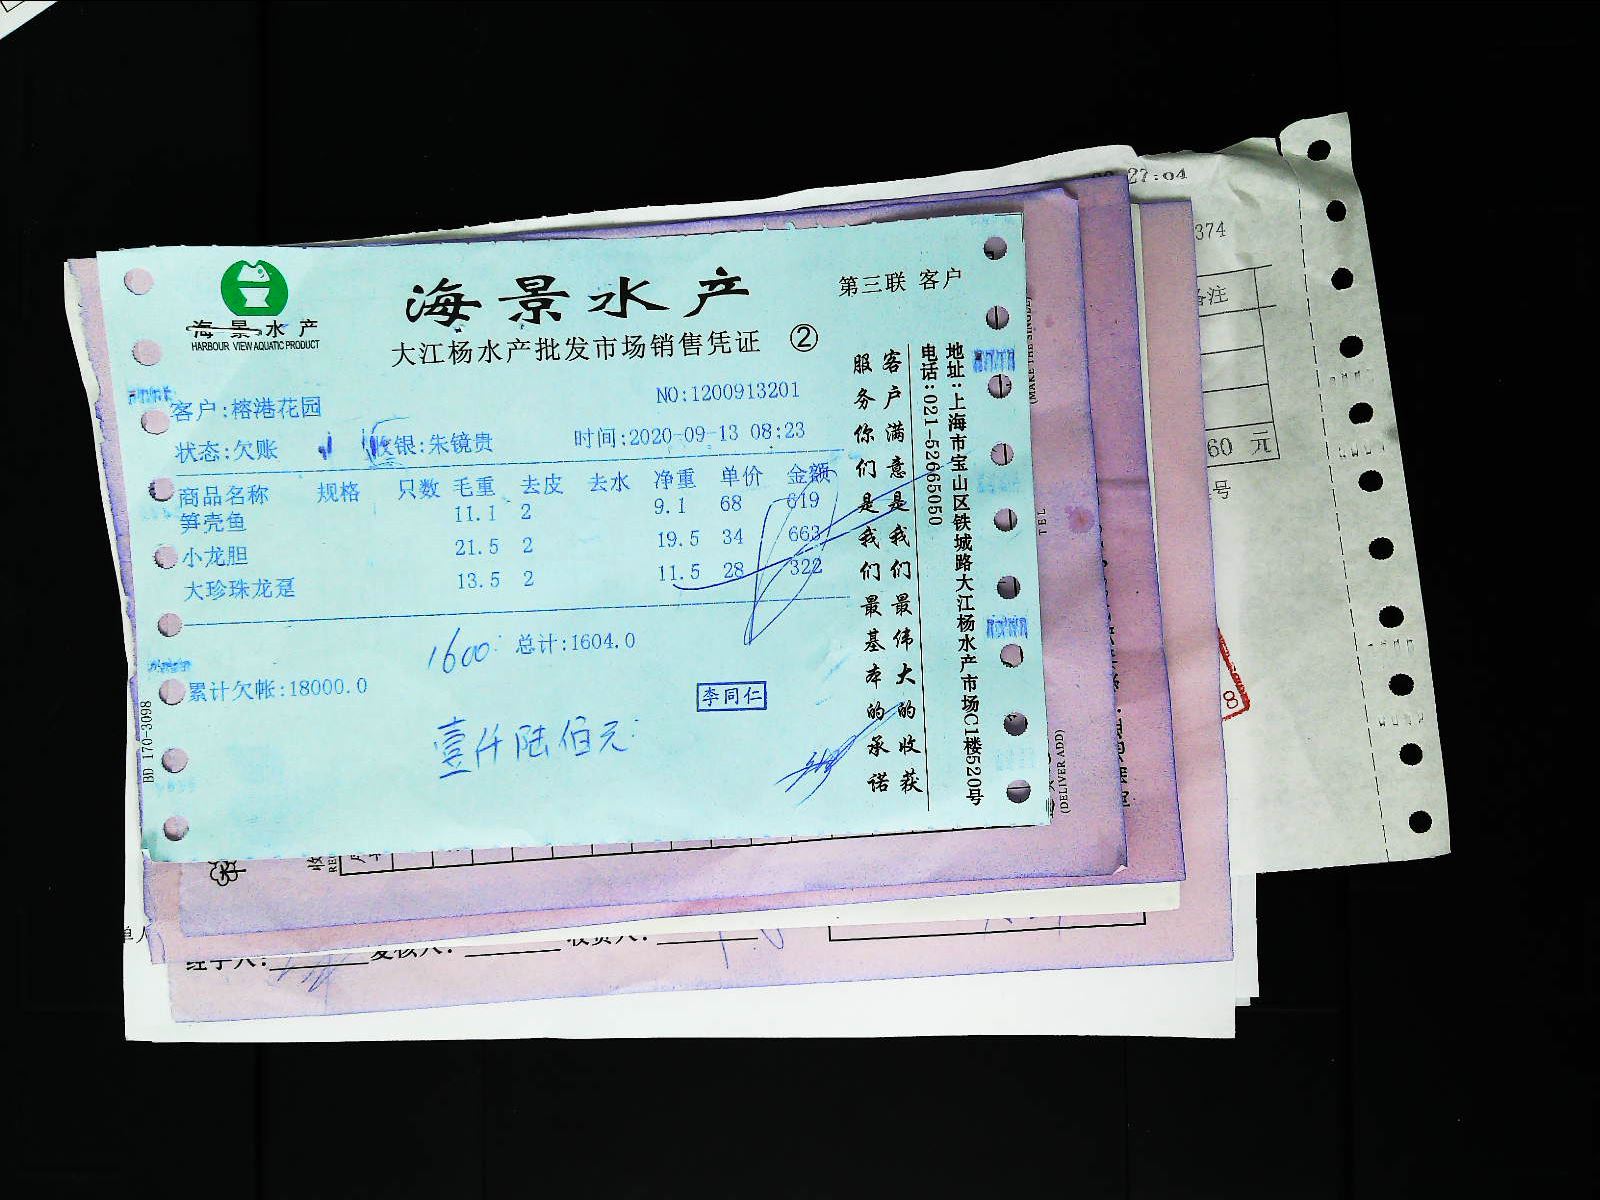 海景水产
HARBOUR VIEW AQUATIC PRODUCT
海景水产
大江杨水产批发市场销售凭证 ②
第三联 客户
NO:1200913201
客户:榕港花园
状态:欠账 收银:朱镜贵 时间:2020-09-13 08:23
商品名称 规格 只数 毛重 去皮 去水 净重 单价 金额
笋壳鱼 11.1 2 9.1 68 619
小龙胆 21.5 2 19.5 34 663
大珍珠龙趸 13.5 2 11.5 28 322
1600 总计:1604.0
累计欠帐:18000.0
李同仁
壹仟陆佰元
BD 170-3098
客户满意是我们最伟大的收获
服务你们是我们最基本的承诺
地址:上海市宝山区铁城路大江杨水产市场C1楼520号
电话:021-52665050
27:04
374
备注
60 元
号
8
(MAKE THE SINGLE)
TEL
(DELIVER ADD)
经手人: 复核人: 收货人: